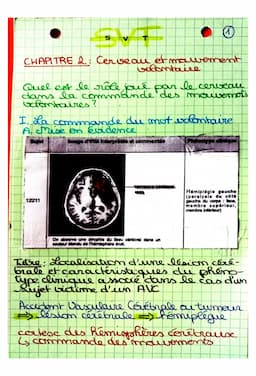 SVT
1
CHAPITRE 2: Cerveau et mouvement
volontaire
Quel est le rôle joué par le cerveau
dans la commande des mouvements
volontaires?
I. La commande du mvt volontaire
A. Mise en évidence
Sujet
Image d'IRM interprétée et commentée
12211
Hémiplégie gauche
(paralysie du côté
gauche du corps : face,
membre supérieur,
membre inférieur)
On observe une atrophie du tissu cérébral dans un
Titre: Localisation d'une lésion céré-
brale et caractéristiques du phéno-
type clinique associé dans le cas d'un
sujet victime d'un AVC
Accident Vasculaire Cérébrale ou tumeur
⇒ lésion cérébrale ⇒ hémiplégie
cortex des hémisphères cérébraux
↳ commande des mouvements